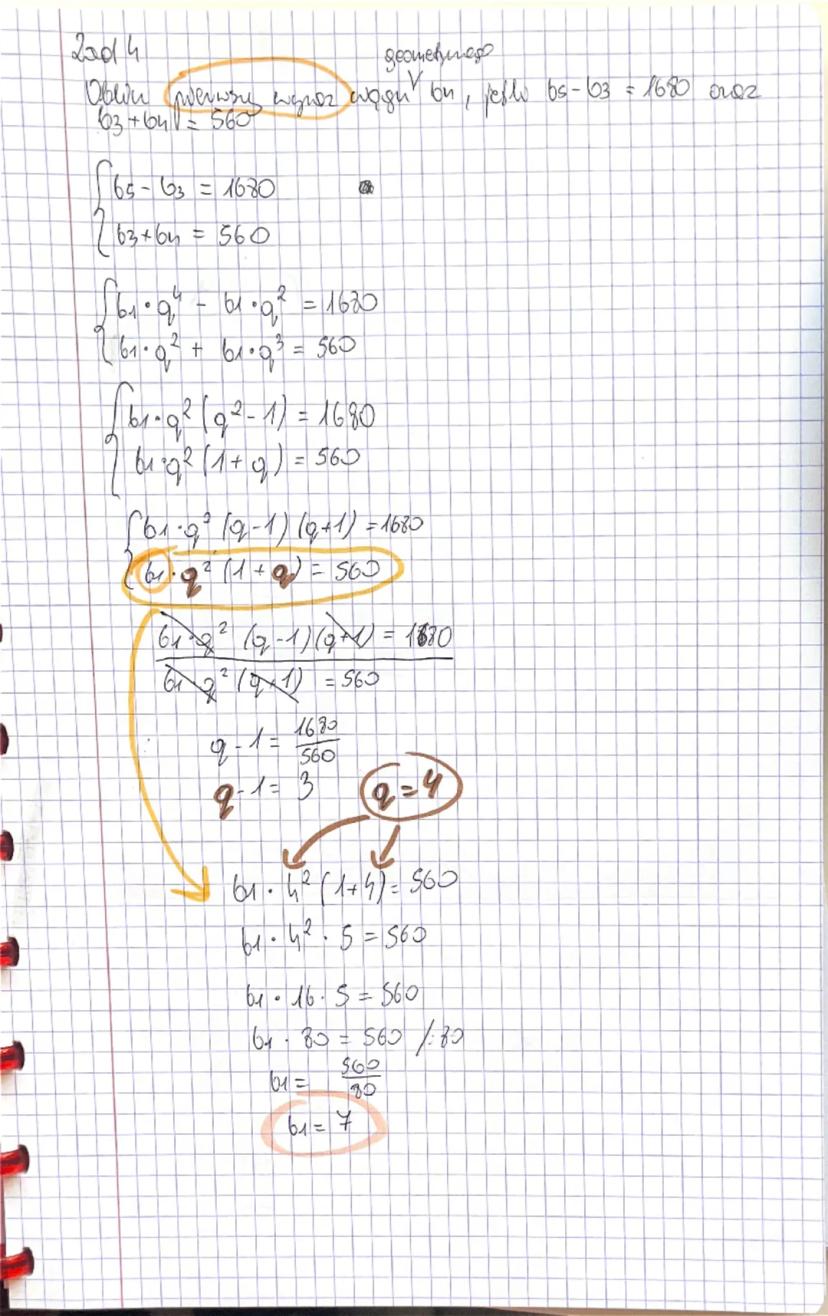 Zad 4
geometrycznego
Oblicz pierwszy wyraz ciągu bn, jeśli b5-b3 = 1680 oraz
b3+b4 = 560
b5 - b3 = 1680
b3+b4 = 560
b1·q⁴ - b1·q² = 1680
b1·q² + b1·q³ = 560
b1·q² (q²-1) = 1680
b1·q² (1+q) = 560
b1·q² (q-1) (q+1) = 1680
b1·q² (1+q) = 560
b1·q² (q-1)(q+1) = 1680
b1·q² (q+1) = 560
q-1 = 1680/560
q-1 = 3 q=4
b1·4² (1+4) = 560
b1·4²·5 = 560
b1·16·5 = 560
b1·80 = 560 /:80
b1 = 560/80
b1 = 7